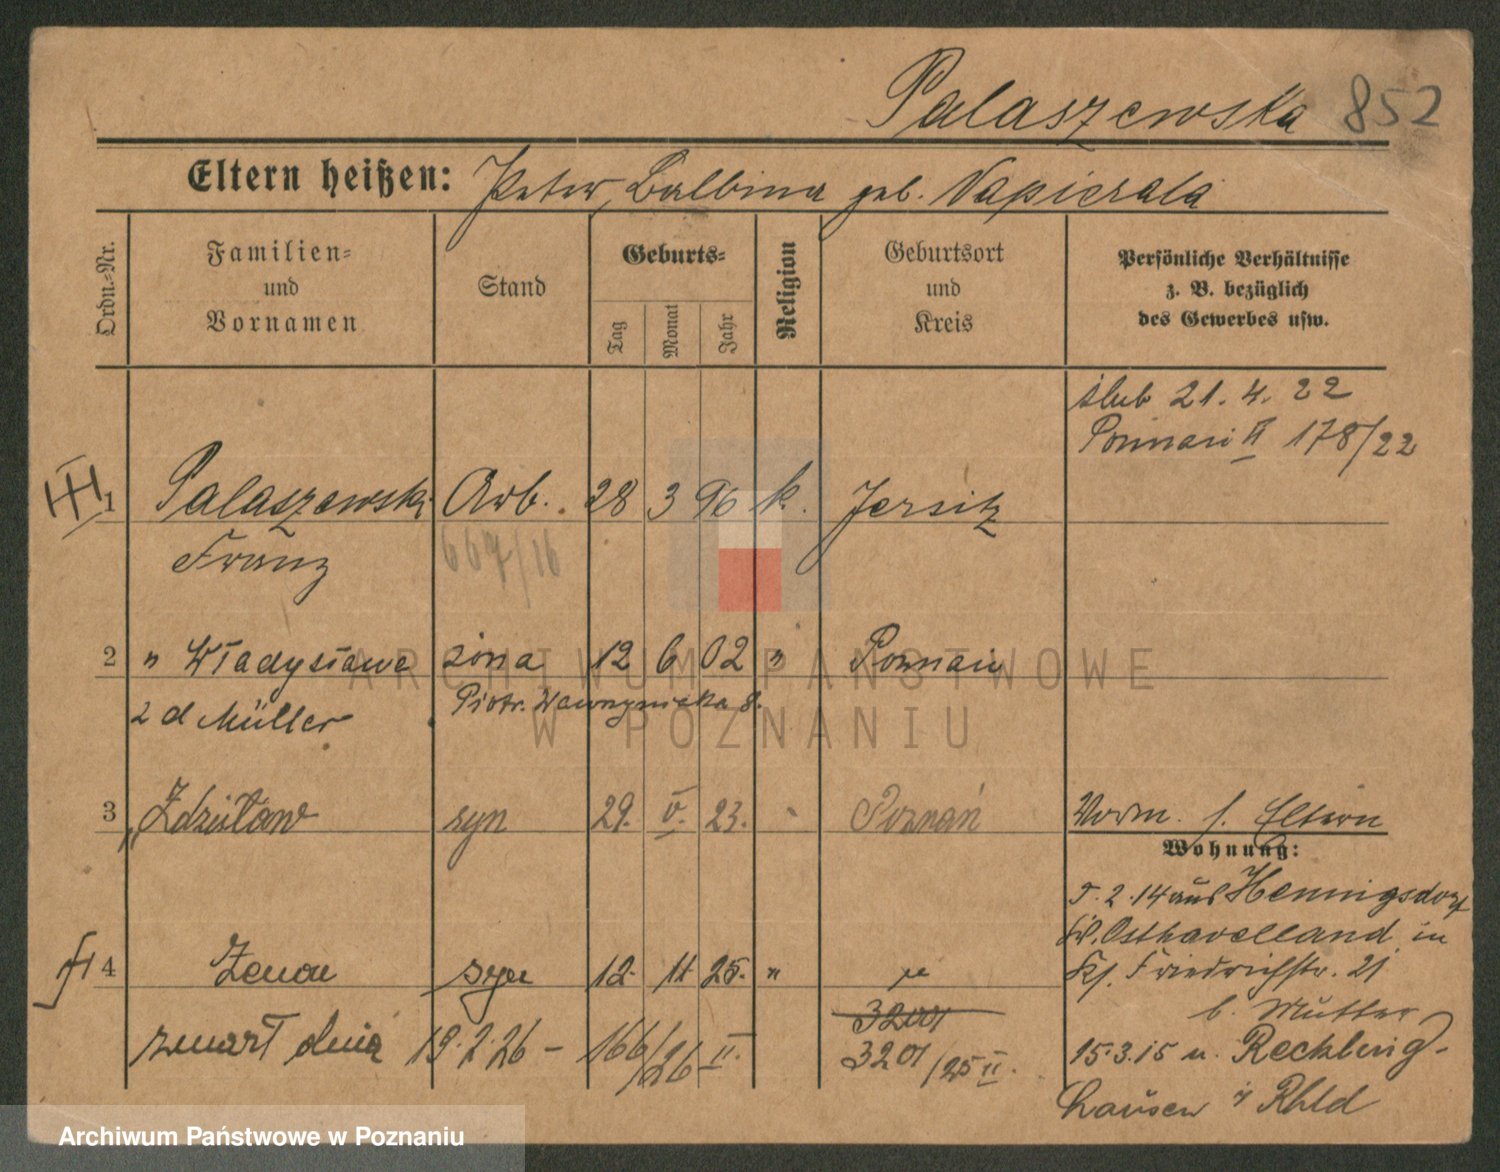 Palaszewska 852
Eltern heißen: Peter, Balbina geb. Napierala
Ordn.-Nr.
Familien-
und
Vornamen
Stand
Geburts-
Tag
Monat
Jahr
Religion
Geburtsort
und
Kreis
Persönliche Verhältnisse
z. B. bezüglich
des Gewerbes usw.
ślub 21. 4. 22
Poznań II 178/22
1 Palaszewski Arb. 28 3 96 k. Jersitz
Franz 667/16
2 " Władysława żona 12 6 02 " Poznań
2 d Müller Piotr. Wawrzyniaka 8.
3 " Zdzisław syn 29. V. 23. Poznań
Vorm. s. Eltern
Wohnung:
5.2.14 aus Hennigsdorf
Kr. Osthavelland in
4 Zenon syn 12. 11. 25. "
Friedrichstr. 21
3201
b. Mutter
zmarł dnia 19.2.26 – 166/26 II. 3201/25 II.
15.3.15 n. Reckling-
hausen i/ Rhld
ARCHIWUM PAŃSTWOWE
W POZNANIU
Archiwum Państwowe w Poznaniu